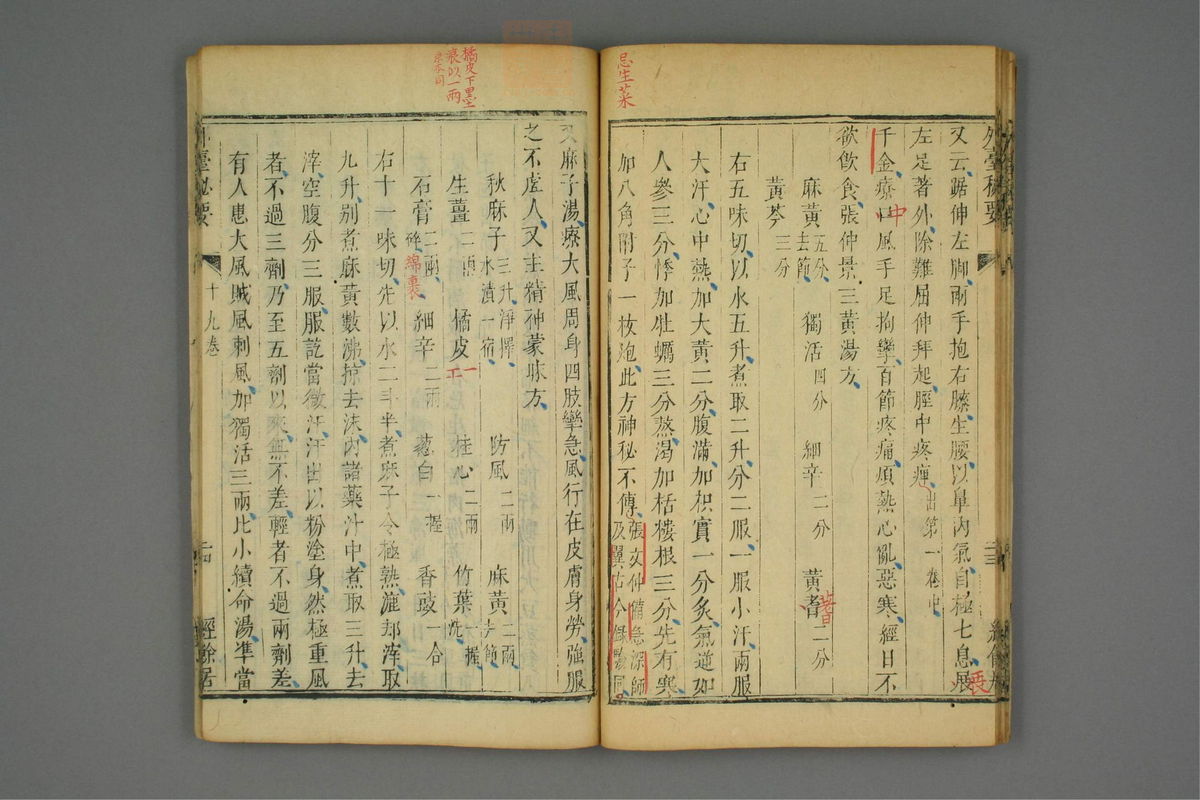 忌生菜
外臺秘要
又云、踞伸左脚、兩手抱右膝、生腰、以鼻內氣、自極七息、展
左足著外、除難屈伸拜起、脛中疼痺、出第一卷中
千金療中風、手足拘攣、百節疼痛、煩熱心亂、惡寒、經日不
欲飲食、張仲景三黃湯方、
麻黃五分去節、 獨活四分 細辛二分 黃耆二分
黃芩三分
右五味切、以水五升、煮取二升、分二服、一服小汗、兩服
大汗、心中熱、加大黃二分、腹滿、加枳實一分炙、氣逆、加
人參三分、悸、加牡蠣三分熬、渴、加栝樓根三分、先有寒
加八角附子一枚炮、此方神秘不傳、張文仲備急深師
及翼古今錄驗同、
橘皮下黑亡
裹以一兩
又麻子湯、療大風周身四肢攣急、風行在皮膚、身勞、強服
之不虛人、又主精神蒙昧方、
秋麻子三升淨擇水漬一宿、 防風二兩 麻黃二兩去節、
生薑二兩 橘皮二 桂心二兩 竹葉一握洗、
石膏二兩碎綿裹 細辛二兩 葱白一握 香豉一合
右十一味切、先以水二斗半煮麻子、令極熟、漉却滓、取
九升、別煮麻黃數沸、掠去沫、內諸藥汁中、煮取三升、去
滓、空腹分三服、服訖當微汗、汗出以粉塗身、然極重風
者、不過三劑、乃至五劑、以來無不差、輕者不過兩劑差、
有人患大風賊風刺風、加獨活三兩、比小續命湯準當
外臺秘要
十九卷
二十四
經餘居